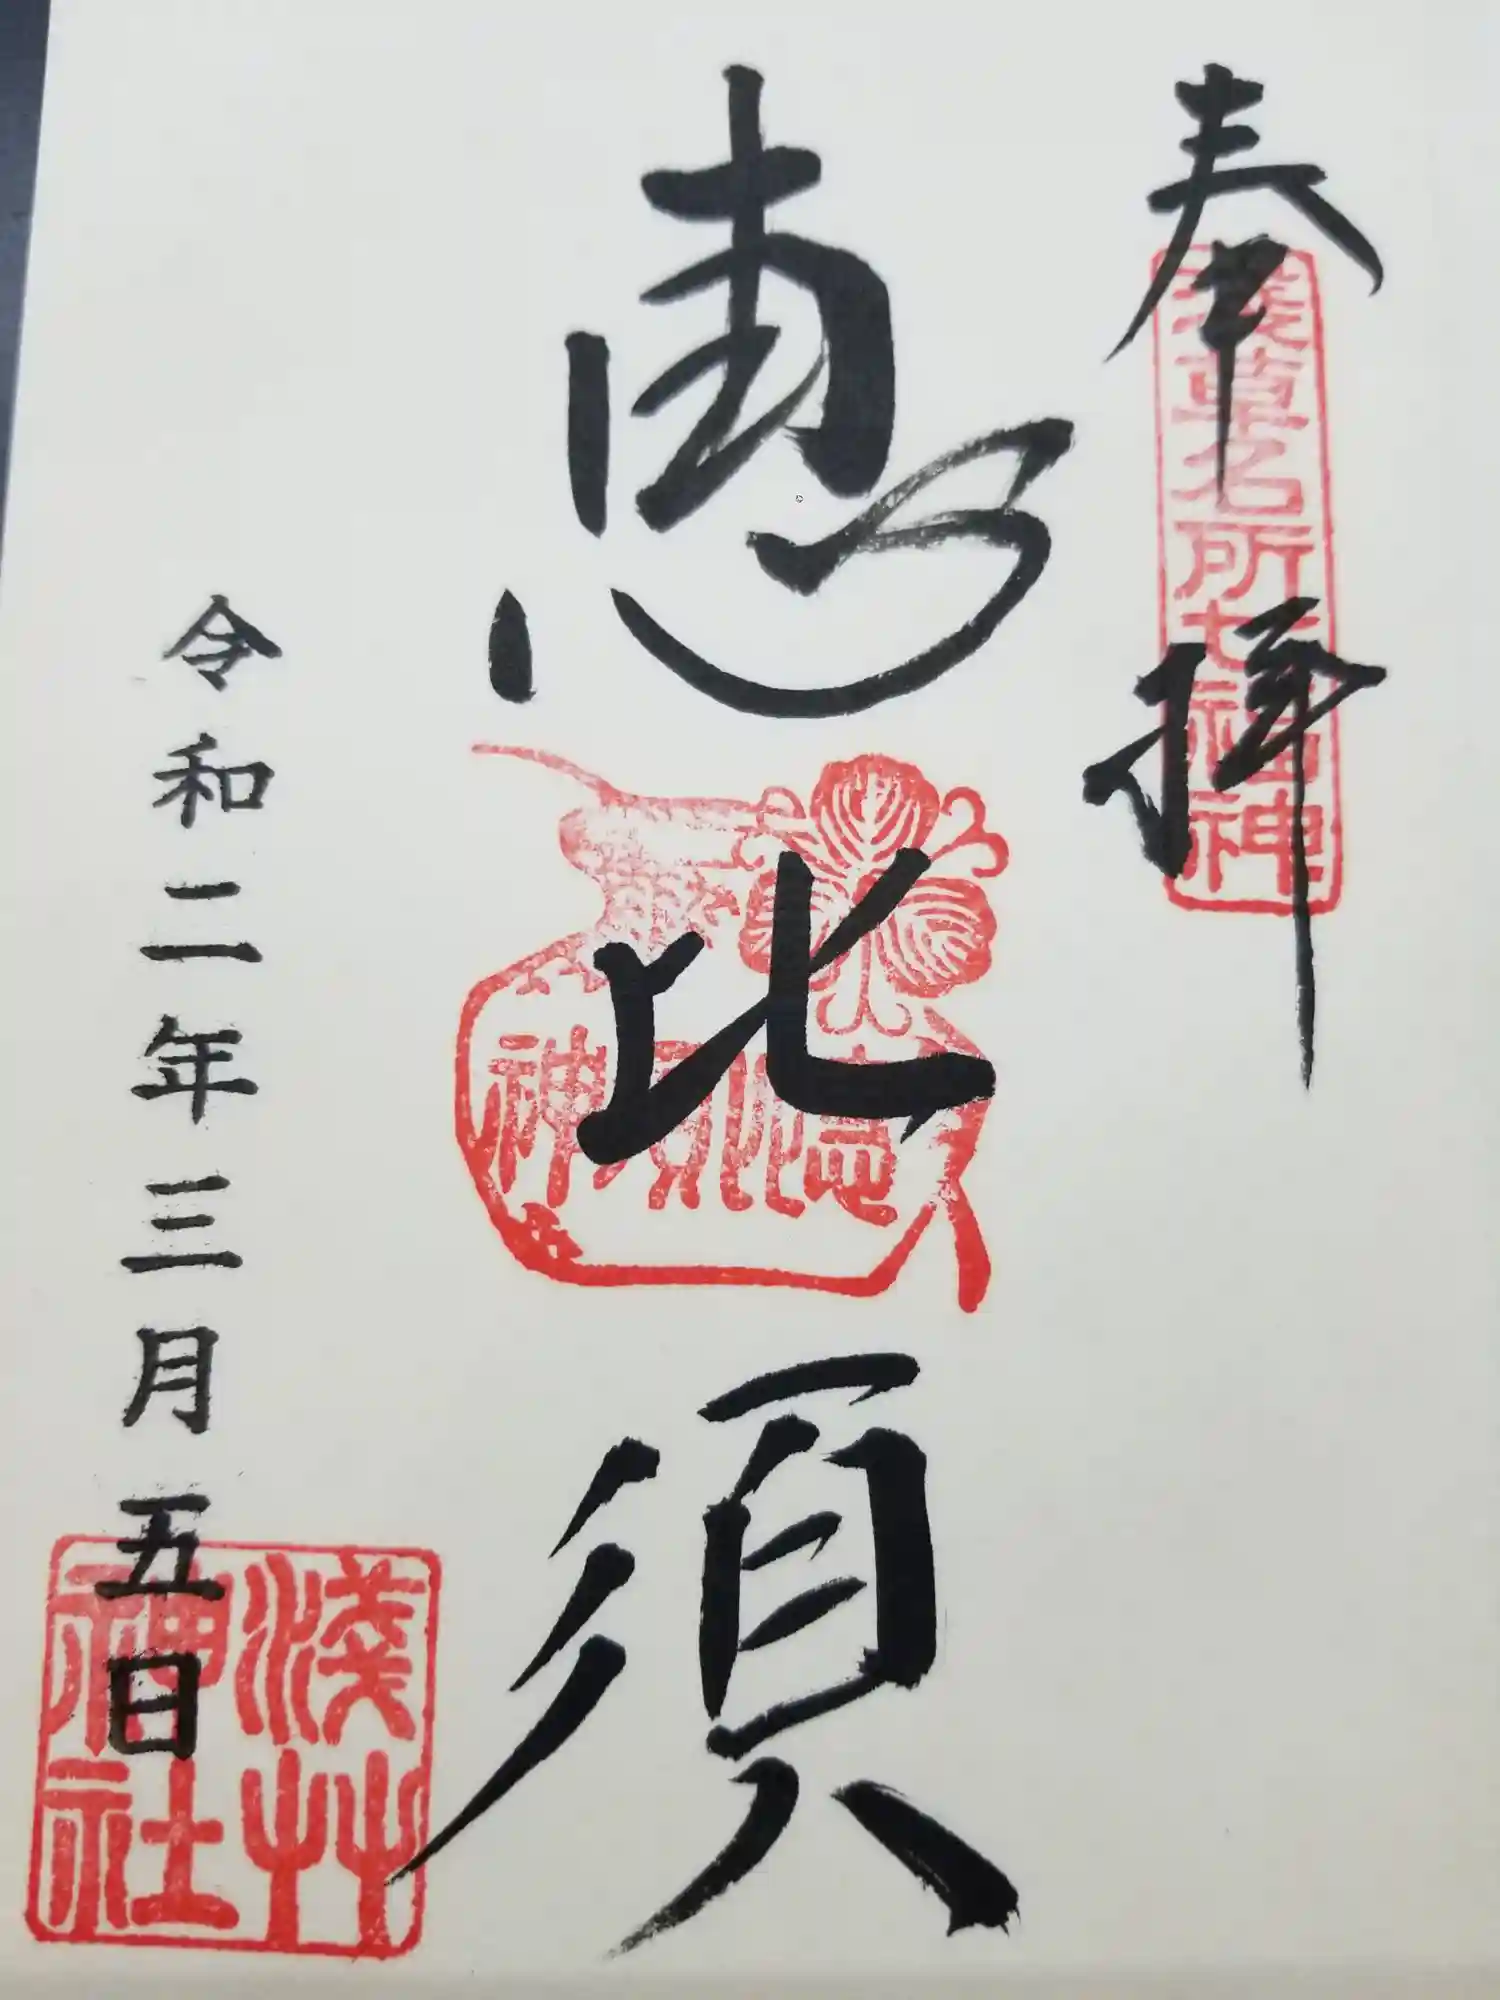 奉拝
浅草名所七福神
恵比須
恵比須神
令和二年三月五日
淺艸神社